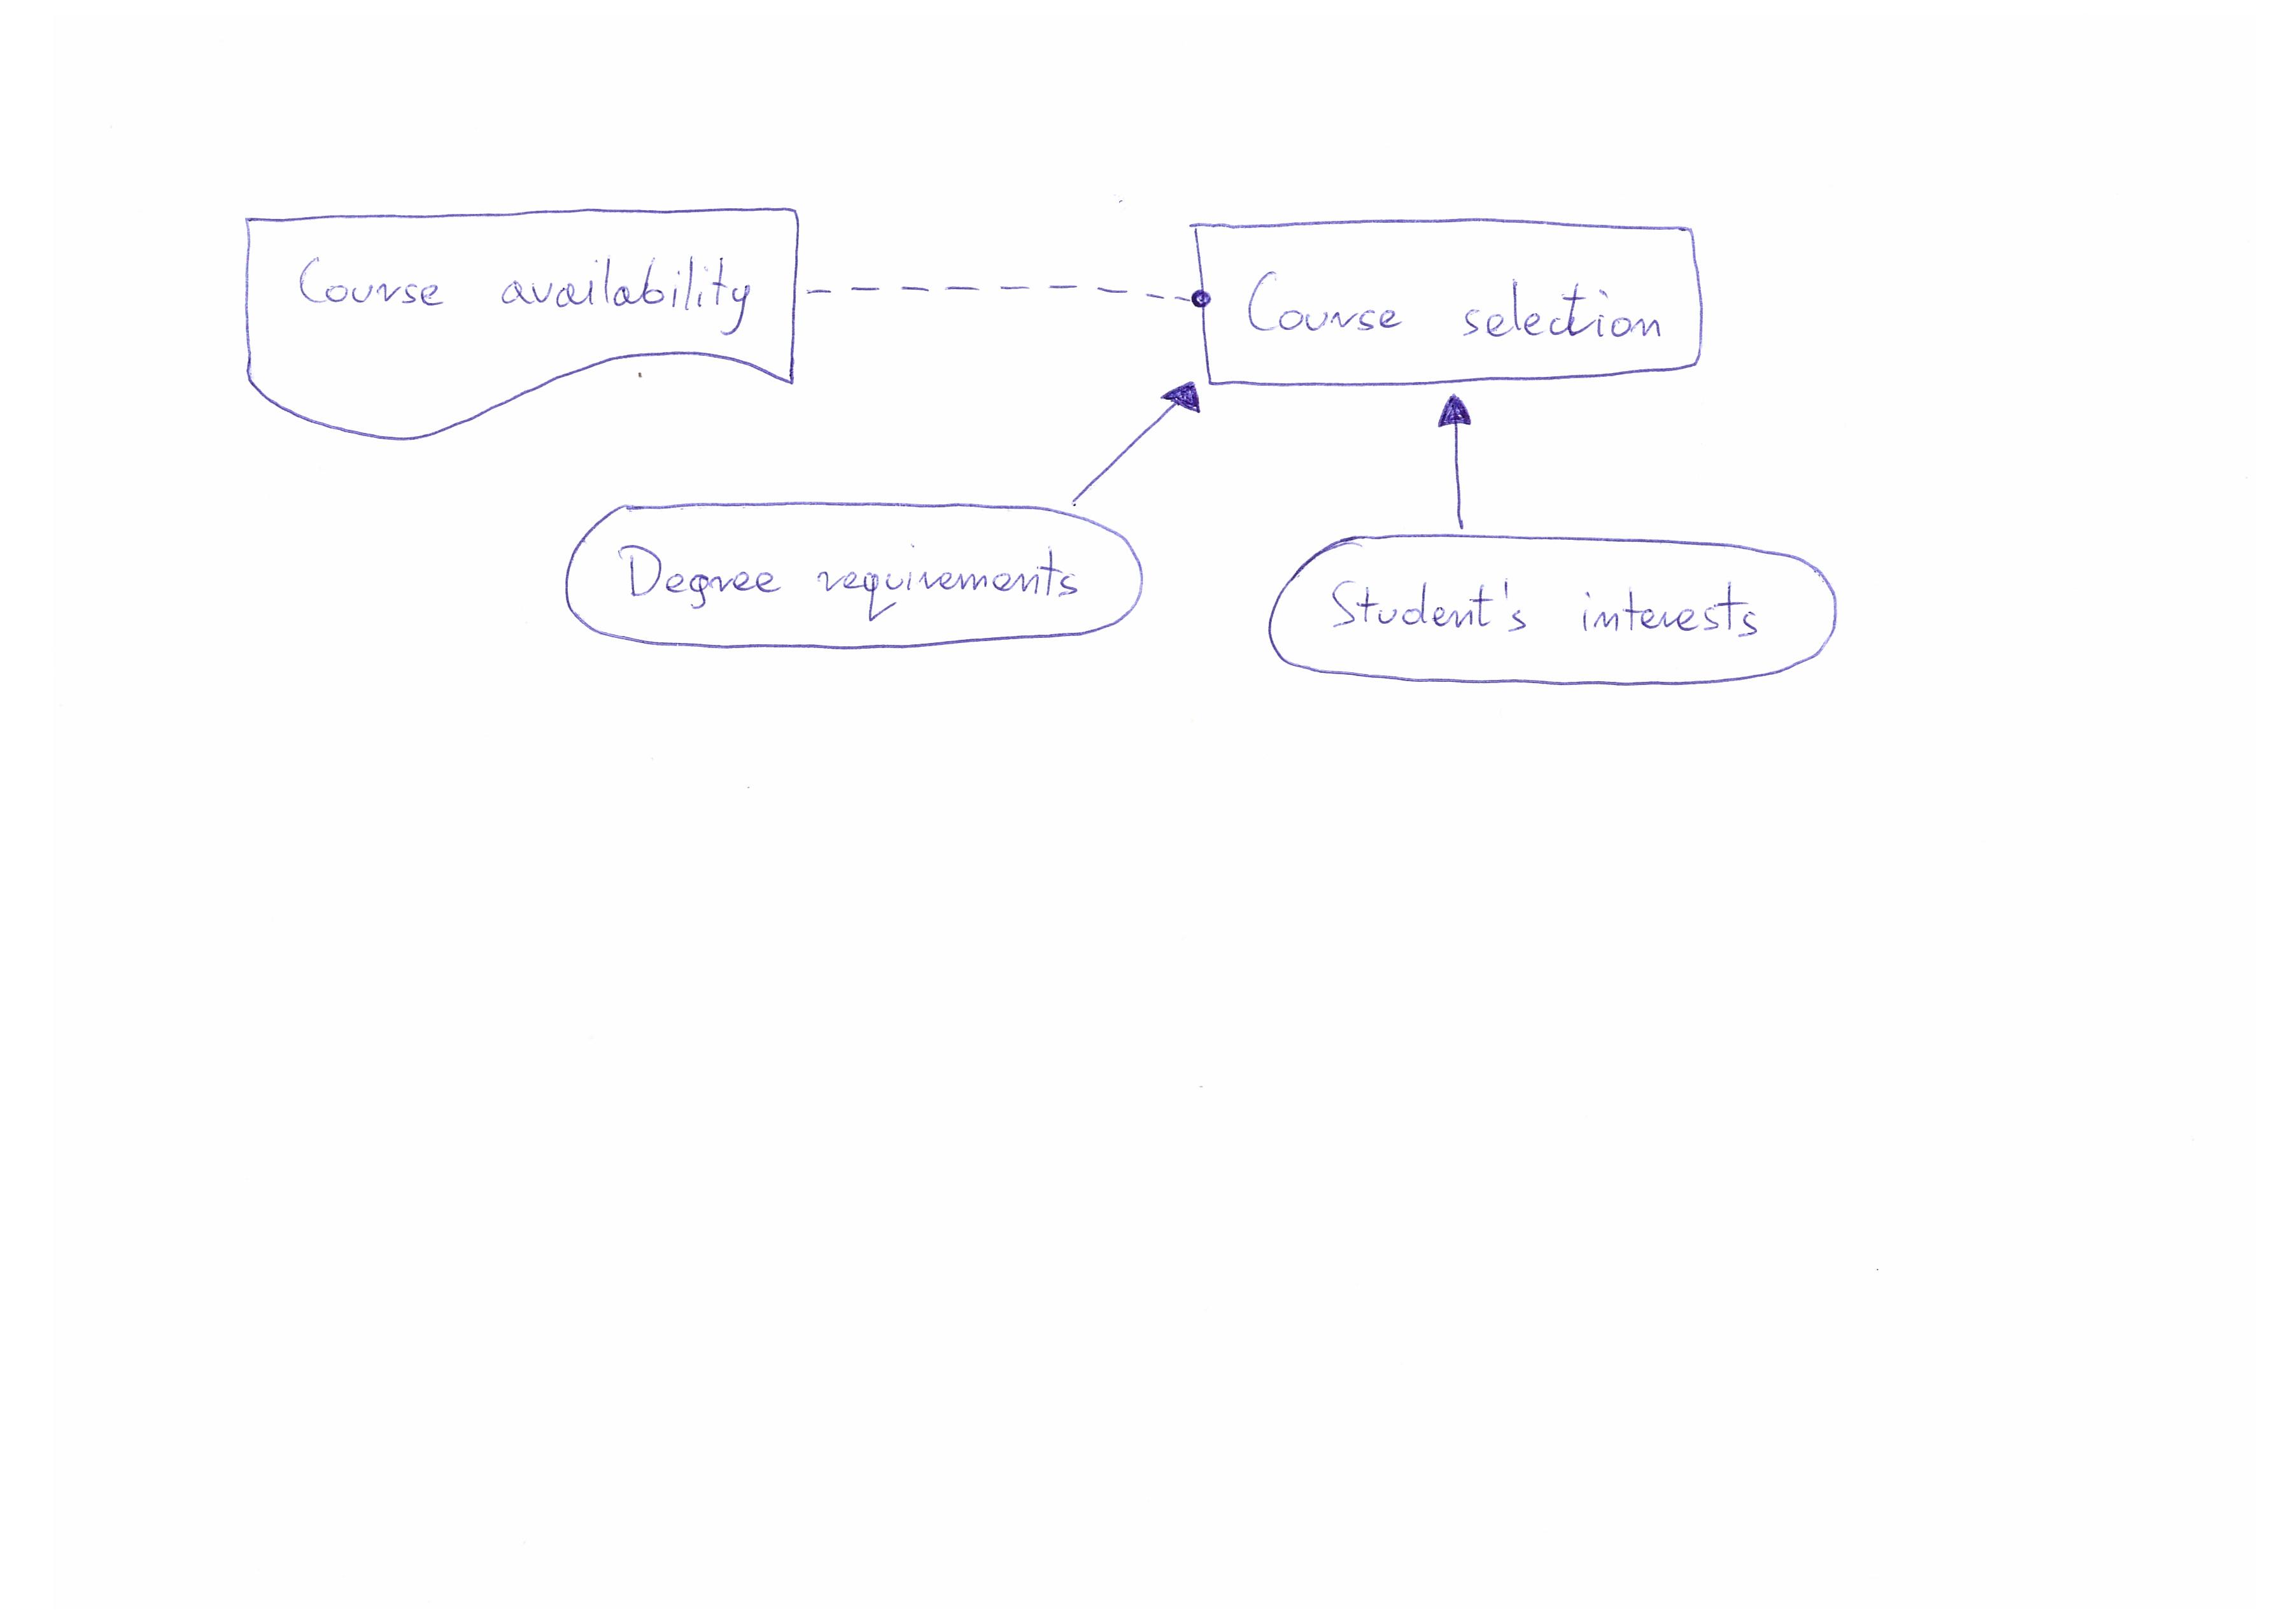 Course availability
Course selection
Degree requirements
Student's interests